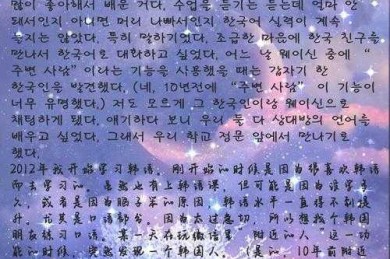 많이 좋아해서 배운 거다. 수업을 듣기는 듣는데 얼마 안
돼서인지 아니면 머리 나빠서인지 한국어 실력이 계속
늘지는 않았다. 특히 말하기였다. 조급한 마음에 한국 친구를
만나서 한국어로 대화하고 싶었다. 어느 날 웨이신 중에 “
주변 사람” 이라는 기능을 사용했을 때는 갑자기 한
한국인을 발견했다. (네, 10년전에 “주변 사람” 이 기능이
너무 유명했다.) 저도 모르게 그 한국인이랑 웨이신으로
채팅하게 됐다. 얘기하다 보니 우리 둘 다 상대방의 언어를
배우고 싶었다. 그래서 우리 학교 정문 앞에서 만나기로
했다.
2012年我开始学习韩语。刚开始的时候是因为很喜欢韩语
而去学习的。虽然也有上韩语课，但可能是因为没学多
久，或者是因为脑子笨的原因，韩语水平一直得不到提
升，尤其是口语部分。因为太过急切，所以想找个韩国
朋友练习口语。某一天在玩微信里“附近的人”这一功
能的时候，突然发现一个韩国人。（是的，10年前附近